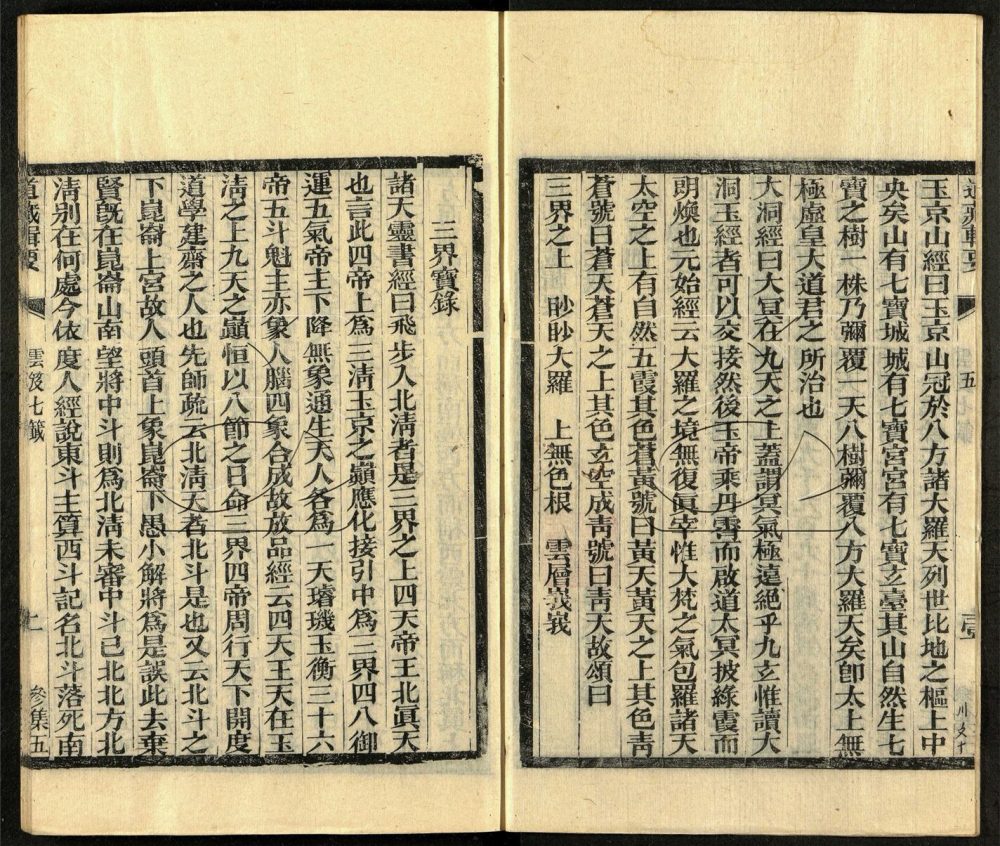 玉京山經曰玉京山冠於八方諸大羅天列世比地之樞上中
央矣山有七寶城城有七寶宮宮有七寶玄臺其山自然生七
寶之樹一株乃彌覆一天八樹彌覆八方大羅天矣卽太上無
極虛皇大道君之所治也
大洞經曰大冥在九天之上蓋謂冥氣極遠絕乎九玄惟讀大
洞玉經者可以交接然後玉帝乘丹霄而啟道太冥披綠霞而
朗煥也元始經云大羅之境無復眞宰惟大梵之氣包羅諸天
太空之上有自然五霞其色蒼黃號曰黃天黃天之上其色靑
蒼號曰蒼天蒼天之上其色玄空成靑號曰靑天故頌曰
三界之上 眇眇大羅 上無色根 雲層峩峩
三界寶錄
諸天靈書經曰飛步入北淸者是三界之上四天帝王北眞天
也言此四帝上爲三淸玉京之巓應化接引中爲三界四八御
運五氣帝主下降無象通生天人各爲一天璿璣玉衡三十六
帝五斗魁主亦象人腦四象合成故放品經云四天王天在玉
淸之上九天之巓恒以八節之日命三界四帝周行天下開度
道學建齋之人也先師疏云北淸天者北斗是也又云北斗之
下崑崙上宮故人頭首上象崑崙下愚小解將爲是談此去棄
賢旣在崑崙山南望將中斗則爲北淸未審中斗已北北方北
淸别在何處今依度人經說東斗主算西斗記名北斗落死南
道藏輯要
雲笈七籤
參集五